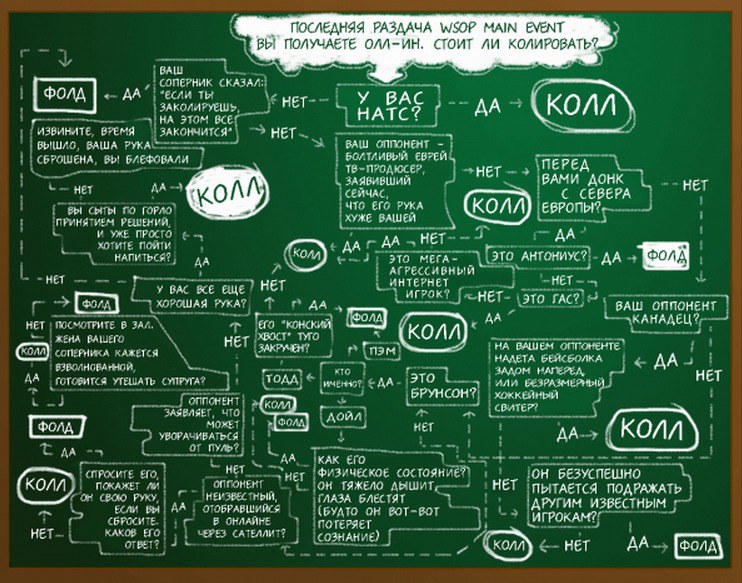 ПОСЛЕДНЯЯ РАЗДАЧА WSOP MAIN EVENT
ВЫ ПОЛУЧАЕТЕ ОЛЛ-ИН. СТОИТ ЛИ КОЛИРОВАТЬ?
У ВАС
НАТС?
ДА
КОЛЛ
НЕТ
ВАШ
СОПЕРНИК СКАЗАЛ:
"ЕСЛИ ТЫ
ЗАКОЛИРУЕШЬ,
НА ЭТОМ ВСЕ
ЗАКОНЧИТСЯ"
ДА
ФОЛД
НЕТ
ИЗВИНИТЕ, ВРЕМЯ
ВЫШЛО, ВАША РУКА
СБРОШЕНА, ВЫ БЛЕФОВАЛИ
НЕТ
ДА
КОЛЛ
ВАШ ОППОНЕНТ -
БОЛТЛИВЫЙ ЕВРЕЙ
ТВ-ПРОДЮСЕР,
ЗАЯВИВШИЙ
СЕЙЧАС,
ЧТО ЕГО РУКА
ХУЖЕ ВАШЕЙ
НЕТ
ПЕРЕД
ВАМИ ДОНК
С СЕВЕРА
ЕВРОПЫ?
НЕТ
КОЛЛ
ДА
ВЫ СЫТЫ ПО ГОРЛО
ПРИНЯТИЕМ РЕШЕНИЙ,
И УЖЕ ПРОСТО
ХОТИТЕ ПОЙТИ
НАПИТЬСЯ?
ДА
НЕТ
КОЛЛ
ДА
ДА
НЕТ
ЭТО МЕГА-
АГРЕССИВНЫЙ
ИНТЕРНЕТ
ИГРОК?
ЭТО АНТОНИУС?
ДА
ФОЛД
НЕТ
НЕТ
ЭТО ГАС?
ДА
КОЛЛ
ВАШ ОППОНЕНТ
КАНАДЕЦ?
У ВАС ВСЕ ЕЩЕ
ХОРОШАЯ РУКА?
НЕТ
ФОЛД
НЕТ
КОЛЛ
ДА
ПОСМОТРИТЕ В ЗАЛ.
ЖЕНА ВАШЕГО
СОПЕРНИКА КАЖЕТСЯ
ВЗВОЛНОВАННОЙ,
ГОТОВИТСЯ УТЕШАТЬ СУПРУГА?
НЕТ
ЕГО "КОНСКИЙ
ХВОСТ" ТУГО
ЗАКРУЧЕН?
ДА
ФОЛД
ПЭМ
ТОДД
КТО
ИМЕННО?
ДА
ЭТО
БРУНСОН?
НЕТ
КОЛЛ
ФОЛД
ДОЙЛ
НА ВАШЕМ ОППОНЕНТЕ
НАДЕТА БЕЙСБОЛКА
ЗАДОМ НАПЕРЕД,
ИЛИ БЕЗРАЗМЕРНЫЙ
ХОККЕЙНЫЙ
СВИТЕР?
ДА
НЕТ
ДА
КОЛЛ
ФОЛД
ДА
ОППОНЕНТ
ЗАЯВЛЯЕТ, ЧТО
МОЖЕТ
УВОРАЧИВАТЬСЯ
ОТ ПУЛЬ?
НЕТ
НЕТ
ДА
КОЛЛ
НЕТ
СПРОСИТЕ ЕГО,
ПОКАЖЕТ ЛИ
ОН СВОЮ РУКУ,
ЕСЛИ ВЫ
СБРОСИТЕ.
КАКОВ ЕГО
ОТВЕТ?
ДА
ОППОНЕНТ
НЕИЗВЕСТНЫЙ,
ОТОБРАВШИЙСЯ
В ОНЛАЙНЕ
ЧЕРЕЗ САТЕЛЛИТ?
КАК ЕГО
ФИЗИЧЕСКОЕ СОСТОЯНИЕ?
ОН ТЯЖЕЛО ДЫШИТ,
ГЛАЗА БЛЕСТЯТ
(БУДТО ОН ВОТ-ВОТ
ПОТЕРЯЕТ
СОЗНАНИЕ)
НЕТ
ОН БЕЗУСПЕШНО
ПЫТАЕТСЯ ПОДРАЖАТЬ
ДРУГИМ ИЗВЕСТНЫМ
ИГРОКАМ?
КОЛЛ
НЕТ
ДА
ФОЛД